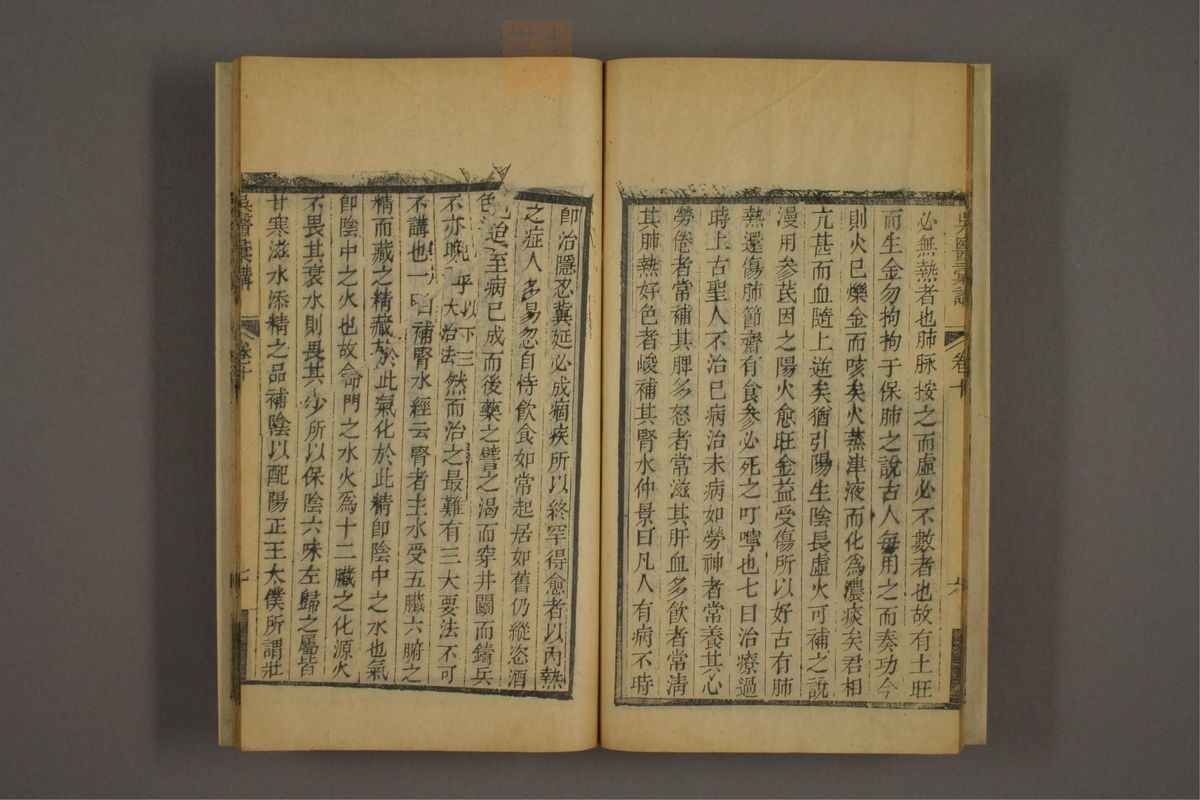 吳醫彙講
卷十
六
必無熱者也肺脉按之而虛必不數者也故有土旺
而生金勿拘拘于保肺之說古人每用之而奏功今
則火已爍金而咳矣火蒸津液而化爲濃痰矣君相
亢甚而血隨上逆矣猶引陽生陰長虛火可補之說
漫用參芪因之陽火愈旺金益受傷所以好古有肺
熱還傷肺節齋有食參必死之叮嚀也七曰治療過
時上古聖人不治已病治未病如勞神者常養其心
勞倦者常補其脾多怒者常滋其肝血多飲者常清
其肺熱好色者峻補其腎水仲景曰凡人有病不時
即治隱忍冀延必成痼疾所以終罕得愈者以內熱
之症人多易忽自恃飲食如常起居如舊仍縱恣酒
色迨至病已成而後藥之譬之渴而穿井鬭而鑄兵
不亦晚乎以下三大治法然而治之最難有三大要法不可
不講也一曰補腎水經云腎者主水受五臟六腑之
精而藏之精藏於此氣化於此精即陰中之水也氣
即陰中之火也故命門之水火爲十二臟之化源火
不畏其衰水則畏其少所以保陰六味左歸之屬皆
甘寒滋水添精之品補陰以配陽正王太僕所謂壯
吳醫彙講
卷十
七